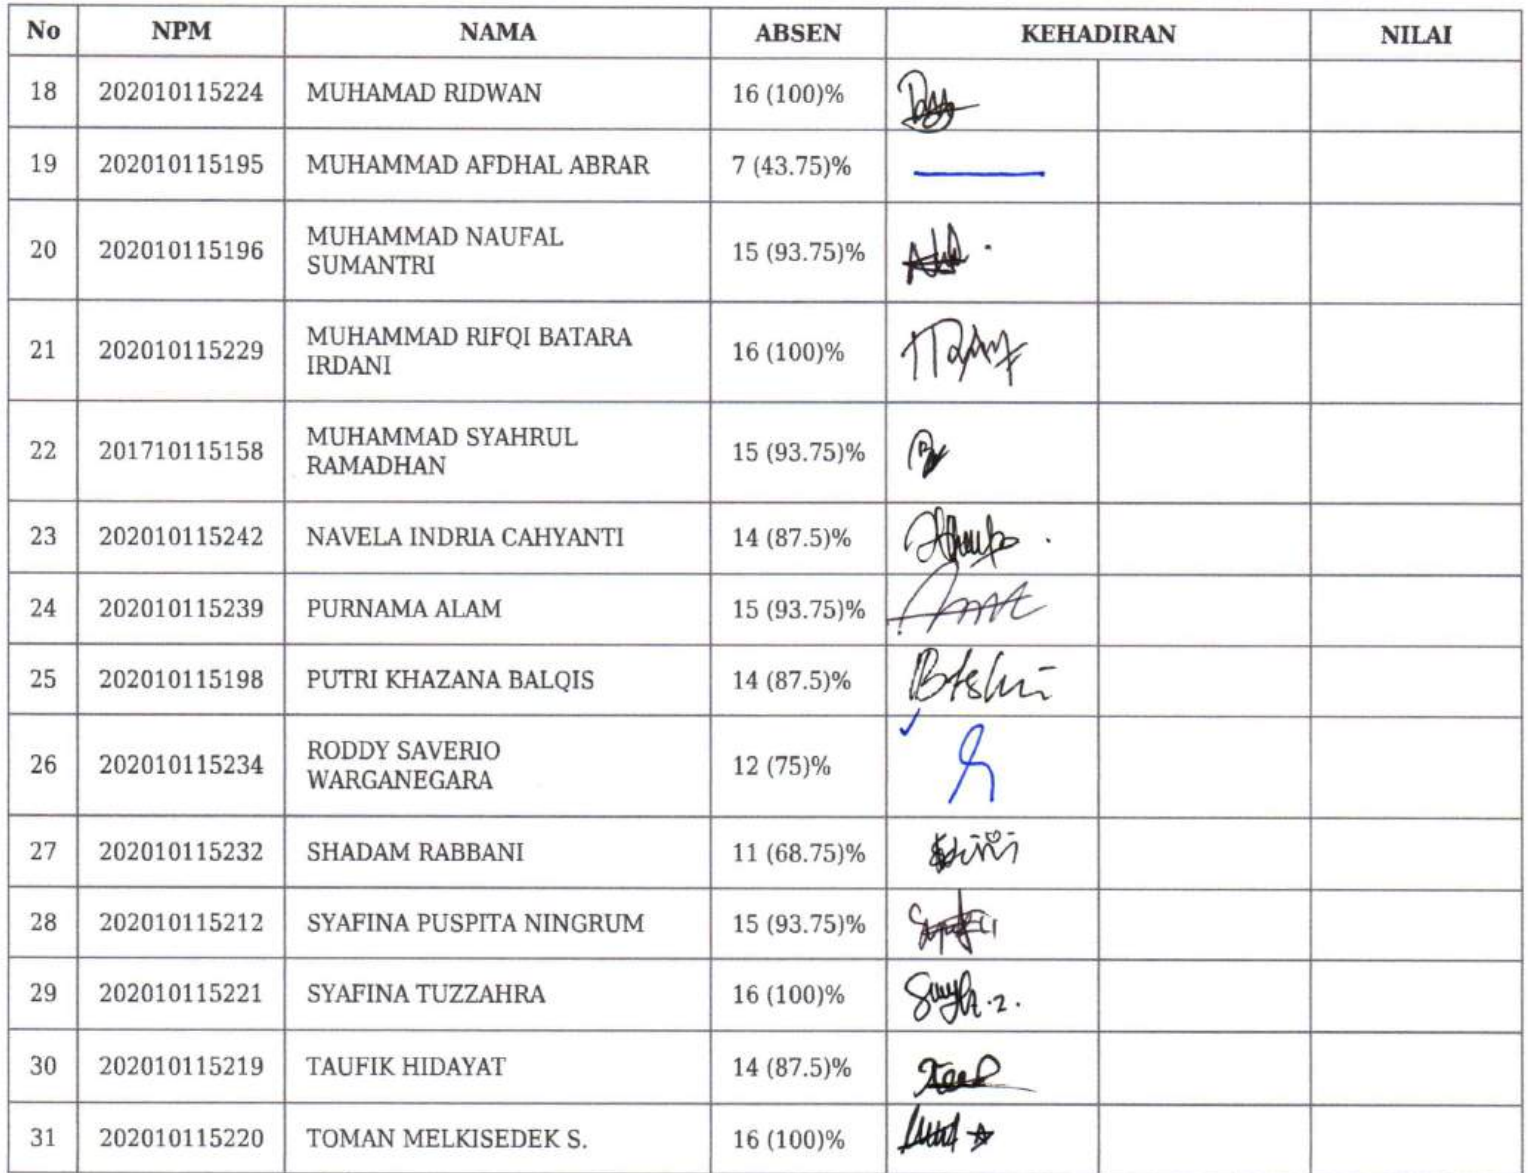 No NPM NAMA ABSEN KEHADIRAN NILAI
18 202010115224 MUHAMAD RIDWAN 16 (100)%
19 202010115195 MUHAMMAD AFDHAL ABRAR 7 (43.75)%
20 202010115196 MUHAMMAD NAUFAL
SUMANTRI 15 (93.75)%
21 202010115229 MUHAMMAD RIFQI BATARA
IRDANI 16 (100)%
22 201710115158 MUHAMMAD SYAHRUL
RAMADHAN 15 (93.75)%
23 202010115242 NAVELA INDRIA CAHYANTI 14 (87.5)%
24 202010115239 PURNAMA ALAM 15 (93.75)%
25 202010115198 PUTRI KHAZANA BALQIS 14 (87.5)%
26 202010115234 RODDY SAVERIO
WARGANEGARA 12 (75)%
27 202010115232 SHADAM RABBANI 11 (68.75)%
28 202010115212 SYAFINA PUSPITA NINGRUM 15 (93.75)%
29 202010115221 SYAFINA TUZZAHRA 16 (100)%
30 202010115219 TAUFIK HIDAYAT 14 (87.5)%
31 202010115220 TOMAN MELKISEDEK S. 16 (100)%